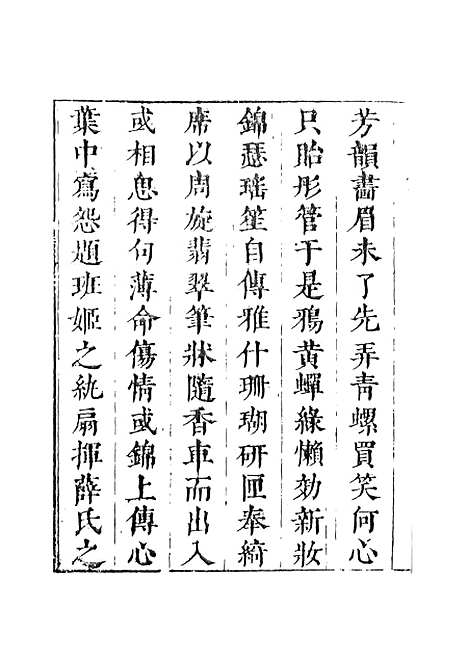 芳韻畵眉未了先弄靑螺買笑何心
只貽彤管于是鴉黄蟬綠懶効新妝
錦瑟瑶笙自傳雅什珊瑚研匣奉綺
席以周旋翡翠筆牀隨香車而出入
或相思得何薄命傷情或錦上傳心
葉中寫怨題班姬之紈扇揮薛氏之